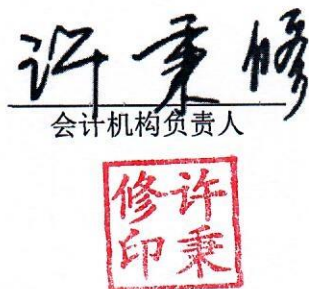 许秉修
会计机构负责人
许秉
修印